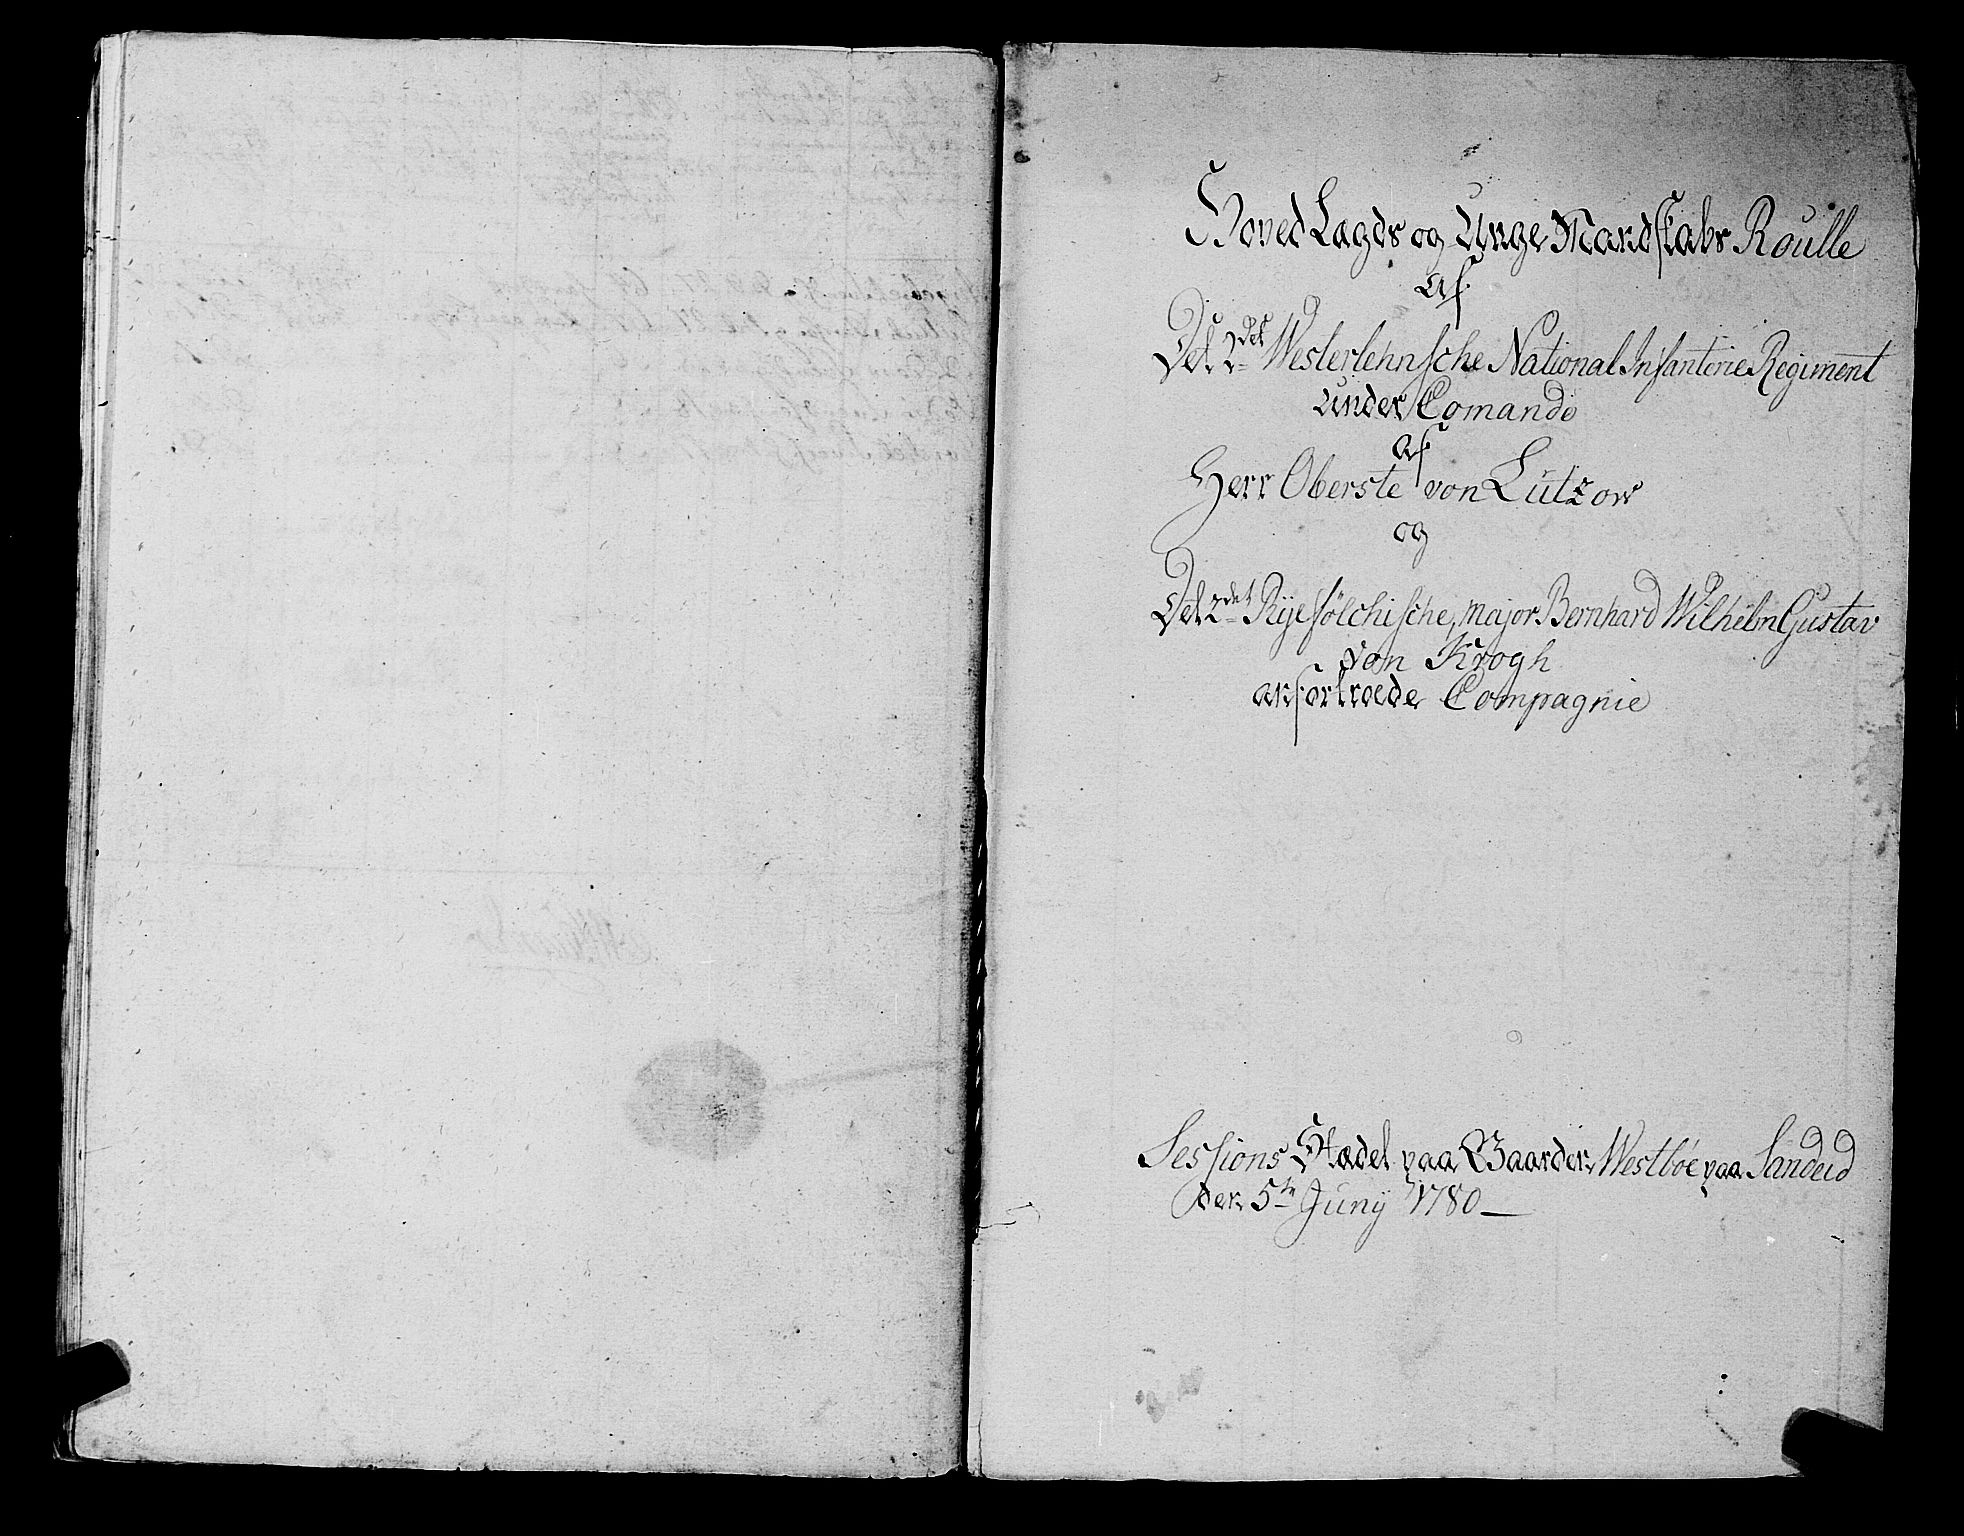 Hoved Lagds og Unge Mandskabs Roulle
af
Det 2det Westerlehnsche National Infanterie Regiment
under Comando
af
Herr Oberste von Lutzow
og
Det 2det Ryefølchische, major Bernhard Wilhelm Gustav
von Krogh
anfortroede Compagnie
Sessions Stædet paa Gaarden Westbøe paa Sandeid
den 5te Juny 1780